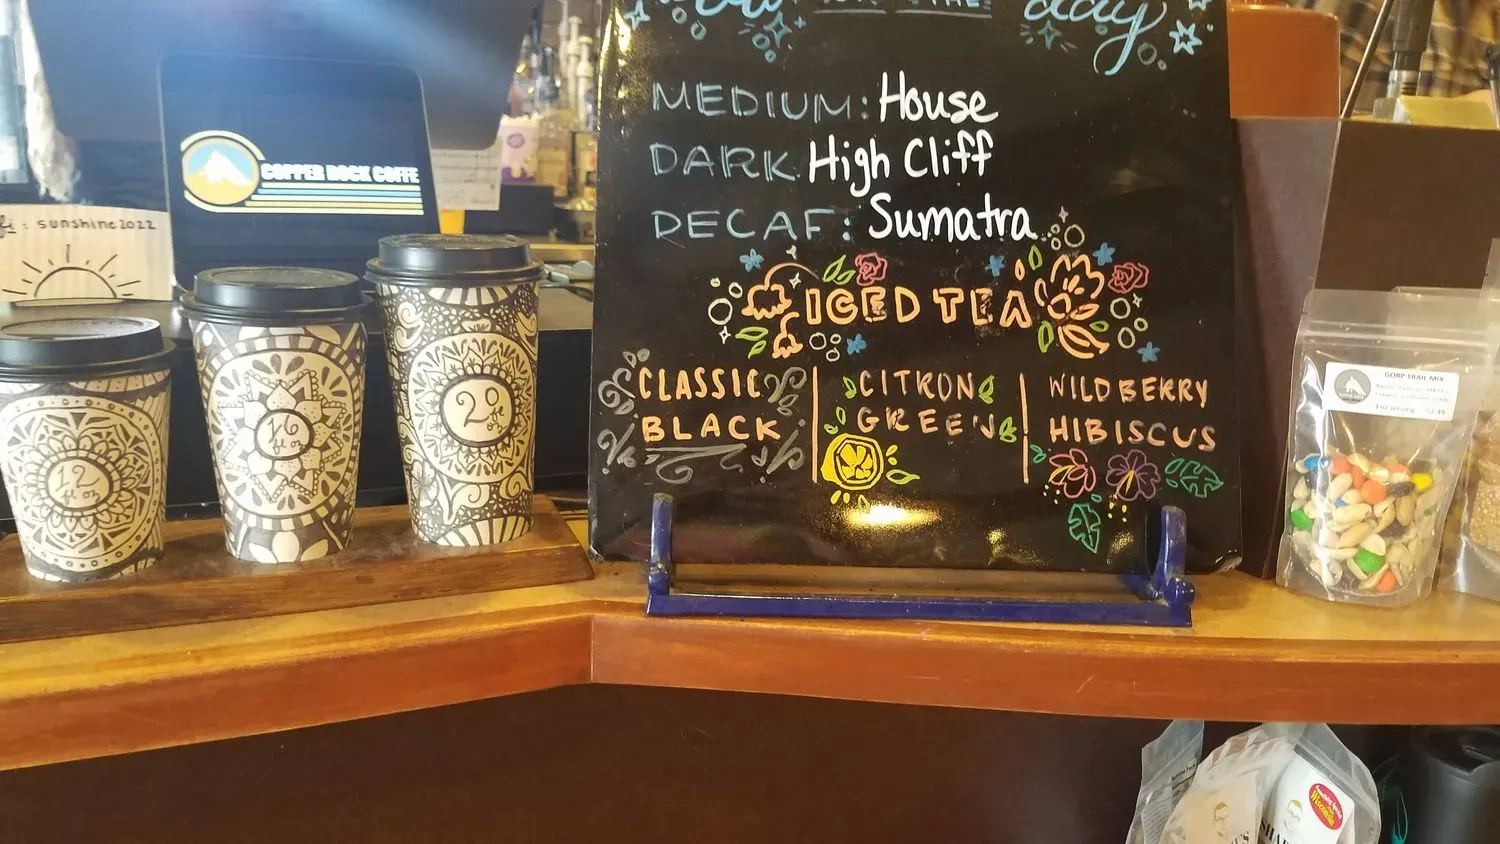 day
MEDIUM: House
DARK High Cliff
DECAF: Sumatra
ICED TEA
CLASSIC
BLACK
CITRON
GREEN
WILDBERRY
HIBISCUS
COPPER ROCK COFFE
: sunshine2022
12
oz
16
oz
20
oz
GORP TRAIL MIX
Something Special
from
Wisconsin